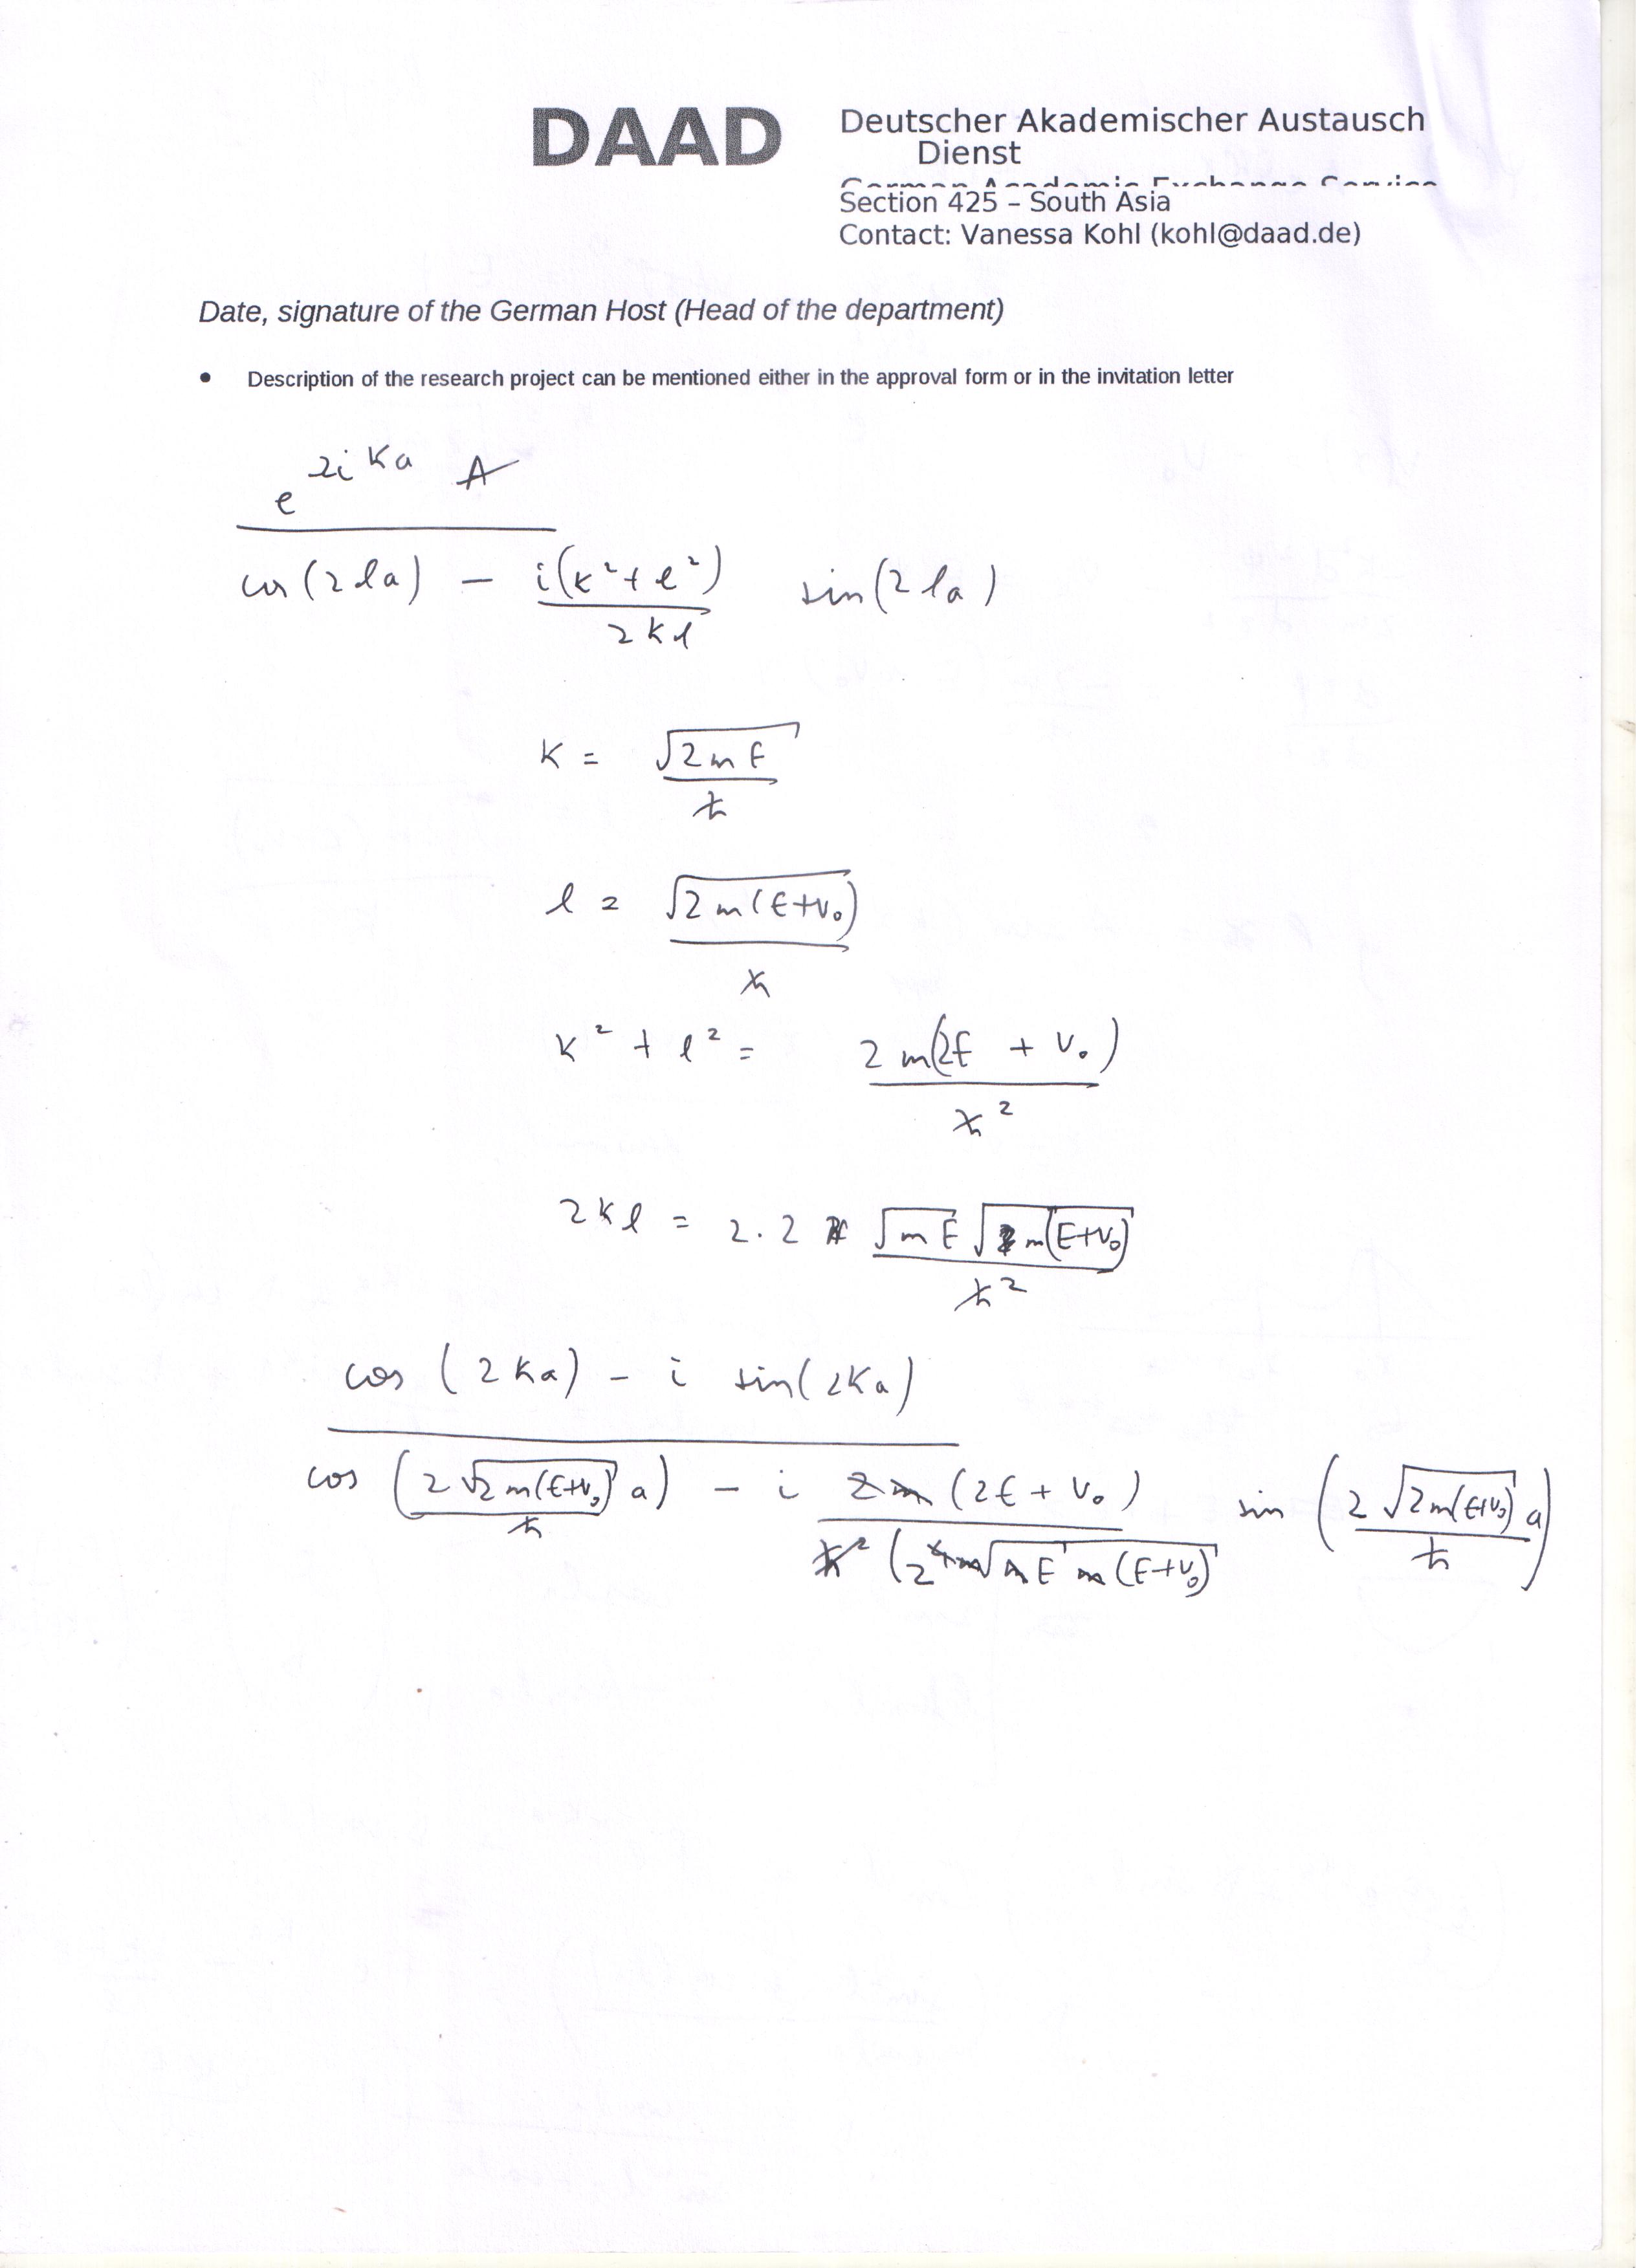 DAAD
Deutscher Akademischer Austausch
Dienst
German Academic Exchange Service
Section 425 – South Asia
Contact: Vanessa Kohl (kohl@daad.de)
Date, signature of the German Host (Head of the department)
• Description of the research project can be mentioned either in the approval form or in the invitation letter
e^{2iKa} A
cos(2la) − i(K²+l²) / 2Kl sin(2la)
K = √(2mE) / ħ
l = √(2m(E+V₀)) / ħ
K² + l² = 2m(2E + V₀) / ħ²
2Kl = 2.2 √(mE) √(m(E+V₀)) / ħ²
cos (2Ka) − i sin(2Ka)
cos (2√(2m(E+V₀)) a / ħ) − i (2E + V₀) / (2√(E (E+V₀)) sin (2√(2m(E+V₀)) a / ħ)